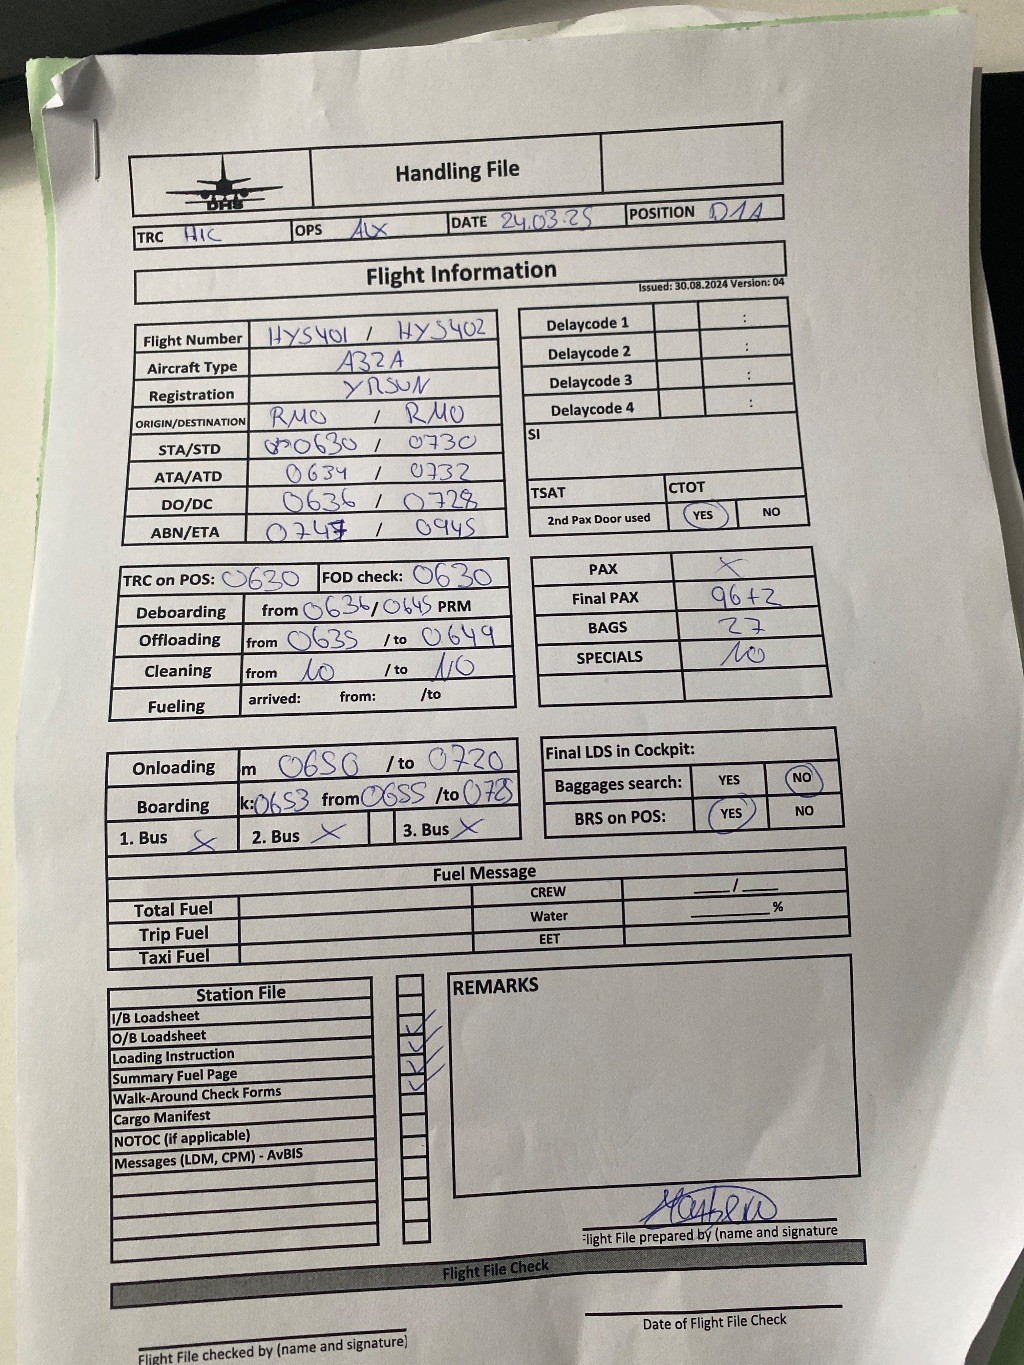 DHS
Handling File
TRC HIC OPS ALX DATE 24.03.25 POSITION D1A
Flight Information
Issued: 30.08.2024 Version: 04
Flight Number HYS401 / HYS402
Aircraft Type A32A
Registration YRSUN
ORIGIN/DESTINATION RMO / RMO
STA/STD 0630 / 0730
ATA/ATD 0634 / 0732
DO/DC 0636 / 0728
ABN/ETA 0747 / 0945
Delaycode 1 :
Delaycode 2 :
Delaycode 3 :
Delaycode 4 :
SI
TSAT CTOT
2nd Pax Door used YES NO
TRC on POS: 0630 FOD check: 0630
Deboarding from 0636/0645 PRM
Offloading from 0635 /to 0649
Cleaning from NO /to NO
Fueling arrived: from: /to
PAX X
Final PAX 96+2
BAGS 27
SPECIALS NO
Onloading m 0650 /to 0720
Boarding k:0653 from 0655 /to
1. Bus X 2. Bus X 3. Bus X
Final LDS in Cockpit:
Baggages search: YES NO
BRS on POS: YES NO
Fuel Message
Total Fuel CREW ___/___
Trip Fuel Water ______%
Taxi Fuel EET
Station File
I/B Loadsheet
O/B Loadsheet
Loading Instruction
Summary Fuel Page
Walk-Around Check Forms
Cargo Manifest
NOTOC (if applicable)
Messages (LDM, CPM) - AvBIS
REMARKS
Flight File prepared by (name and signature
Flight File Check
Flight File checked by (name and signature)
Date of Flight File Check